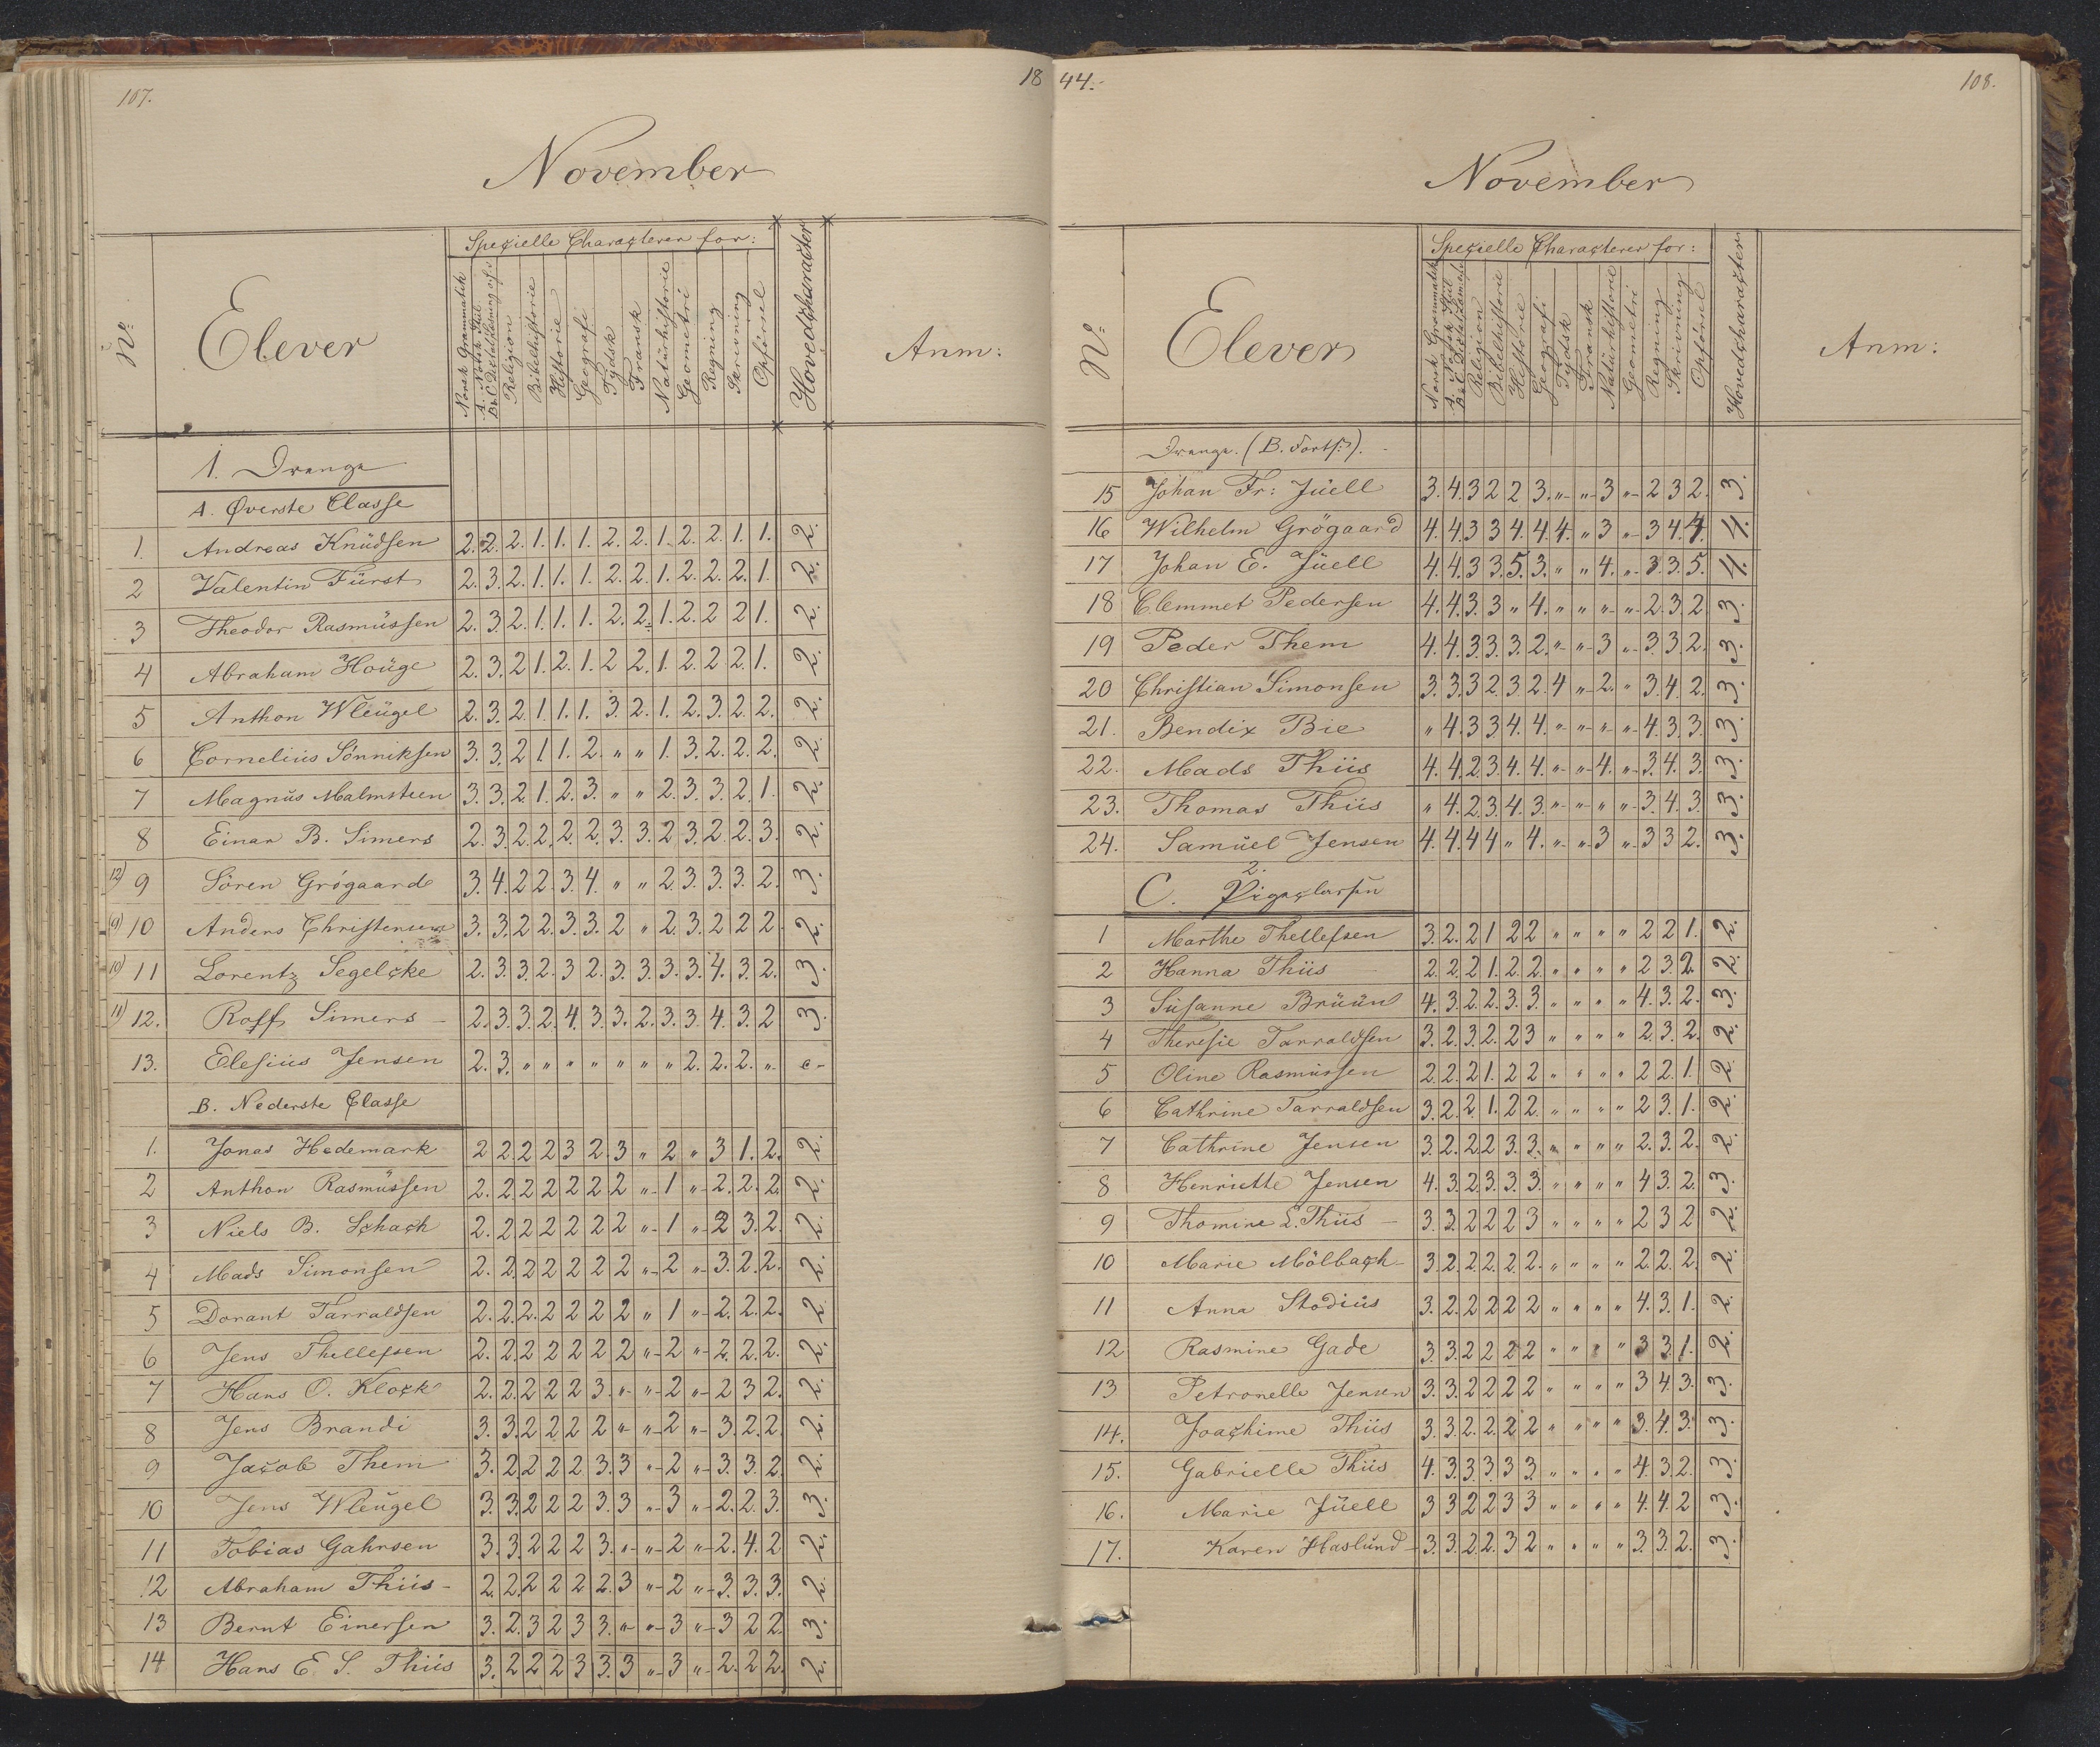 107.
18
November
Nº
Elever
Specielle Characterer for:
Norsk Grammatik
A. Norsk Stiil
B & C Dictatlæsning o.s.v.
Religion
Bibelhistorie
Historie
Geografi
Tydsk
Fransk
Naturhistorie
Geometri
Regning
Skrivning
Opførsel
Hovedcharacter
Anm:
1. Drenge
A. Øverste Classe
1. Andreas Knudsen 2. 2. 2. 1. 1. 1. 2. 2. 1. 2. 2. 1. 1. 2.
2 Valentin Fürst 2. 3. 2. 1. 1. 1. 2. 2. 1. 2. 2. 2. 1. 2.
3 Theodor Rasmüssen 2. 3. 2. 1. 1. 1. 2. 2. 1. 2. 2 2 1. 2.
4 Abraham Houge 2. 3. 2 1. 2. 1. 2 2. 1. 2. 2 2. 1. 2.
5 Anthon Wleügel 2. 3. 2. 1. 1. 1. 3. 2. 1. 2. 3. 2. 2. 2.
6 Cornelius Sønniksen 3. 3. 2 1. 1. 2. " " 1. 3. 2. 2. 2. 2.
7 Magnus Malmsteen 3. 3. 2. 1. 2. 3. " " 2. 3. 3. 2. 1. 2.
8 Einar B. Simers 2. 3. 2. 2. 2. 2. 3. 3. 2. 3. 2. 2. 3. 2.
12) 9 Sören Grögaard 3. 4. 2 2. 3. 4. " " 2. 3. 3. 3. 2. 3.
9) 10 Anders Christensen 3. 3. 2 2. 3. 3. 2 " 2. 3. 2 2 2 2.
10) 11 Lorentz Segelcke 2. 3. 3. 2. 3 2. 3. 3. 3. 3. 4. 3. 2. 3.
11) 12. Roff Simers 2. 3. 3. 2. 4. 3. 3. 2. 3. 3. 4. 3. 2 3.
13. Elesius Jensen 2. 3. " " " " " " " 2. 2. 2. "
B. Nederste Classe
1. Jonas Hedemark 2 2. 2 2 3 2. 3 " 2 " 3 1. 2. 2.
2 Anthon Rasmüssen 2. 2. 2 2 2 2 2 " 1 " 2. 2. 2. 2.
3 Niels B. Schach 2. 2 2 2 2 2 2 " 1 " 2 3. 2. 2.
4 Mads Simonsen 2. 2. 2 2 2 2 2 " 2 " 3. 2. 2. 2.
5 Dorant Tarraldsen 2. 2. 2. 2 2 2 2 " 1 " 2. 2. 2. 2.
6 Jens Thellefsen 2. 2. 2 2 2 2 2 " 2 " 2. 2. 2. 2.
7 Hans O. Klock 2. 2. 2 2 2 3. " " 2 " 2 3 2. 2.
8 Jens Brandi 3. 3. 2 2 2 2 " " 2 " 3. 2. 2. 2.
9 Jacob Them 3. 2. 2 2 2. 3. 3 " 2 " 3. 3. 2. 2.
10 Jens Wleügel 3. 3. 2 2 2 3. 3 " 3 " 2. 2. 3. 3.
11 Tobias Gahrsen 3. 3. 2 2 2 3. " " 2 " 2. 4. 2 2.
12 Abraham Thiis 2. 2. 2 2 2 2. 3 " 2 " 3. 3. 3. 2.
13 Bernt Einersen 3. 2. 3 2 3 3. " " 3 " 3 2 2 3.
14 Hans E. S. Thiis 3. 2 2 2 3 3. 3 " 3 " 2. 2 2. 2.
44.
108.
November
Nº
Elever
Specielle Characterer for:
Norsk Grammatik
A. Norsk Stiil
Religion
Bibelhistorie
Historie
Geografi
Tydsk
Fransk
Naturhistorie
Geometri
Regning
Skrivning
Opførsel
Hovedcharacter
Anm:
Drenge. (B. Forts:).
15 Johan Fr: Jüell 3. 4. 3 2 2 3. " " 3 " 2 3 2. 3.
16 Wilhelm Grögaard 4. 4. 3 3 4. 4. 4. " 3 " 3 4. 4. 4.
17 Johan E. Jüell 4. 4. 3 3. 5. 3. " " 4. " 3. 3. 5. 4.
18 Clemmet Pedersen 4. 4. 3. 3 " 4. " " " " 2. 3. 2. 3.
19 Peder Them 4. 4. 3. 3. 3. 2. " " 3 " 3. 3. 2. 3.
20 Christian Simonsen 3. 3. 3 2. 3. 2. 4 " 2. " 3. 4. 2. 3.
21. Bendix Bie " 4. 3 3 4. 4. " " " " 4. 3. 3. 3.
22. Mads Thiis 4. 4. 2. 3. 4. 4. " " 4. " 3. 4. 3. 3.
23. Thomas Thiis " 4. 2. 3. 4. 3. " " " " 3. 4. 3. 3.
24. Samüel Jensen 4. 4. 4 4 " 4. " " 3 " 3 3 2. 3.
2.
C. Pigeclassen
1 Marthe Thellefsen 3. 2. 2 1 2 2 " " " " 2 2 1. 2.
2 Hanna Thiis 2. 2. 2 1. 2. 2. " " " " 2 3. 2. 2.
3 Susanne Brüün 4. 3. 2. 2. 3. 3. " " " " 4. 3. 2. 3.
4 Theresie Tarraldsen 3. 2. 3. 2. 2 3 " " " " 2. 3. 2. 2.
5 Oline Rasmüssen 2. 2. 2 1. 2 2 " " " " 2 2. 1. 2.
6 Cathrine Tarraldsen 3. 2. 2. 1. 2 2. " " " " 2 3. 1. 2.
7 Cathrine Jensen 3. 2. 2. 2 3. 3. " " " " 2. 3. 2. 2.
8 Henriette Jensen 4. 3. 2. 3. 3. 3. " " " " 4 3. 2. 3.
9 Thomine L. Thiis 3. 3. 2 2 2 3 " " " " 2 3 2 2.
10 Marie Mölbach 3. 2. 2. 2. 2. 2. " " " " 2. 2. 2. 2.
11 Anna Stodius 3. 2. 2 2 2 2 " " " " 4. 3. 1. 2.
12 Rasmine Gade 3. 3. 2 2 2 2 " " " " 3 3. 1. 2.
13 Petronelle Jensen 3. 3. 2 2 2 2 " " " " 3 4. 3. 3.
14. Joachime Thiis 3. 3. 2. 2. 2 2 " " " " 3. 4. 3. 3.
15. Gabrielle Thiis 4. 3. 3. 3. 3 3. " " " " 4. 3. 2. 3.
16. Marie Jüell 3 3 2 2 3 3 " " " " 4. 4. 2 3.
17. Karen Haslund 3. 3. 2. 2. 3 2 " " " " 3. 3. 2. 3.